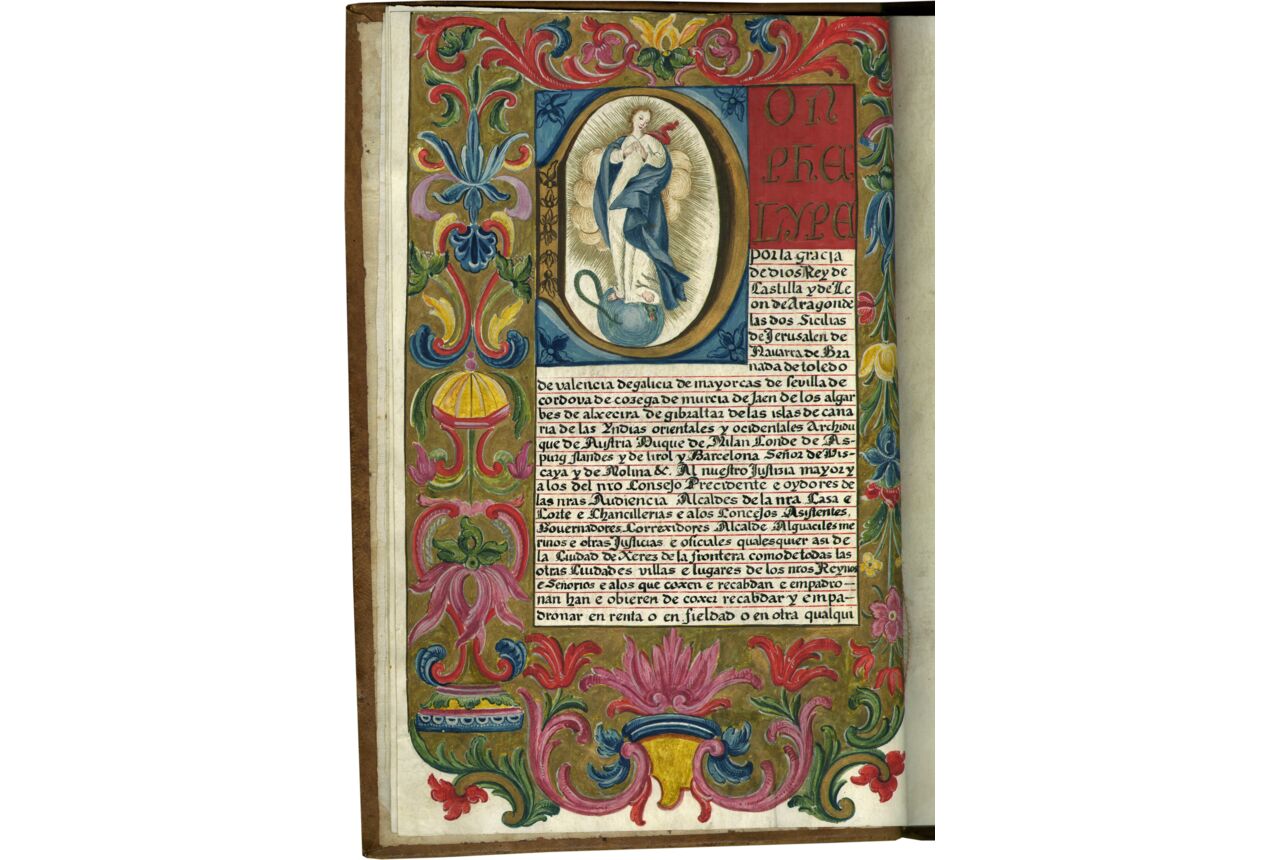 DON
PHE
LYPE
por la gracia
de dios Rey de
Castilla y de Le
on de Aragon de
las dos Sicilias
de Jerusalen de
Navarra de Gra
nada de toledo
de valencia de galicia de mayorcas de sevilla de
cordova de cozega de murcia de Jaen de los algar
bes de alxecira de gibraltar de las islas de cana
ria de las Yndias orientales y ocidentales Archidu
que de Austria Duque de Milan Conde de As-
purg flandes y de tirol y Barcelona Señor de Vis-
caya y de Molina &c. Al nuestro Justizia mayor y
a los del nro Consejo Precidente e oydores de
las nras Audiencia Alcaldes de la nra Casa e
Corte e Chancillerias e a los Concejos Asistentes,
Governadores, Correxidores Alcalde Alguaciles me
rinos e otras Justicias e oficiales qualesquier asi de
la Ciudad de Xerez de la frontera como de todas las
otras Ciudades villas e lugares de los nros Reynos
e Señorios e a los que coxen e recabdan e empadro-
nan han e obieren de coxer recabdar y empa-
dronar en renta o en fieldad o en otra qualqui